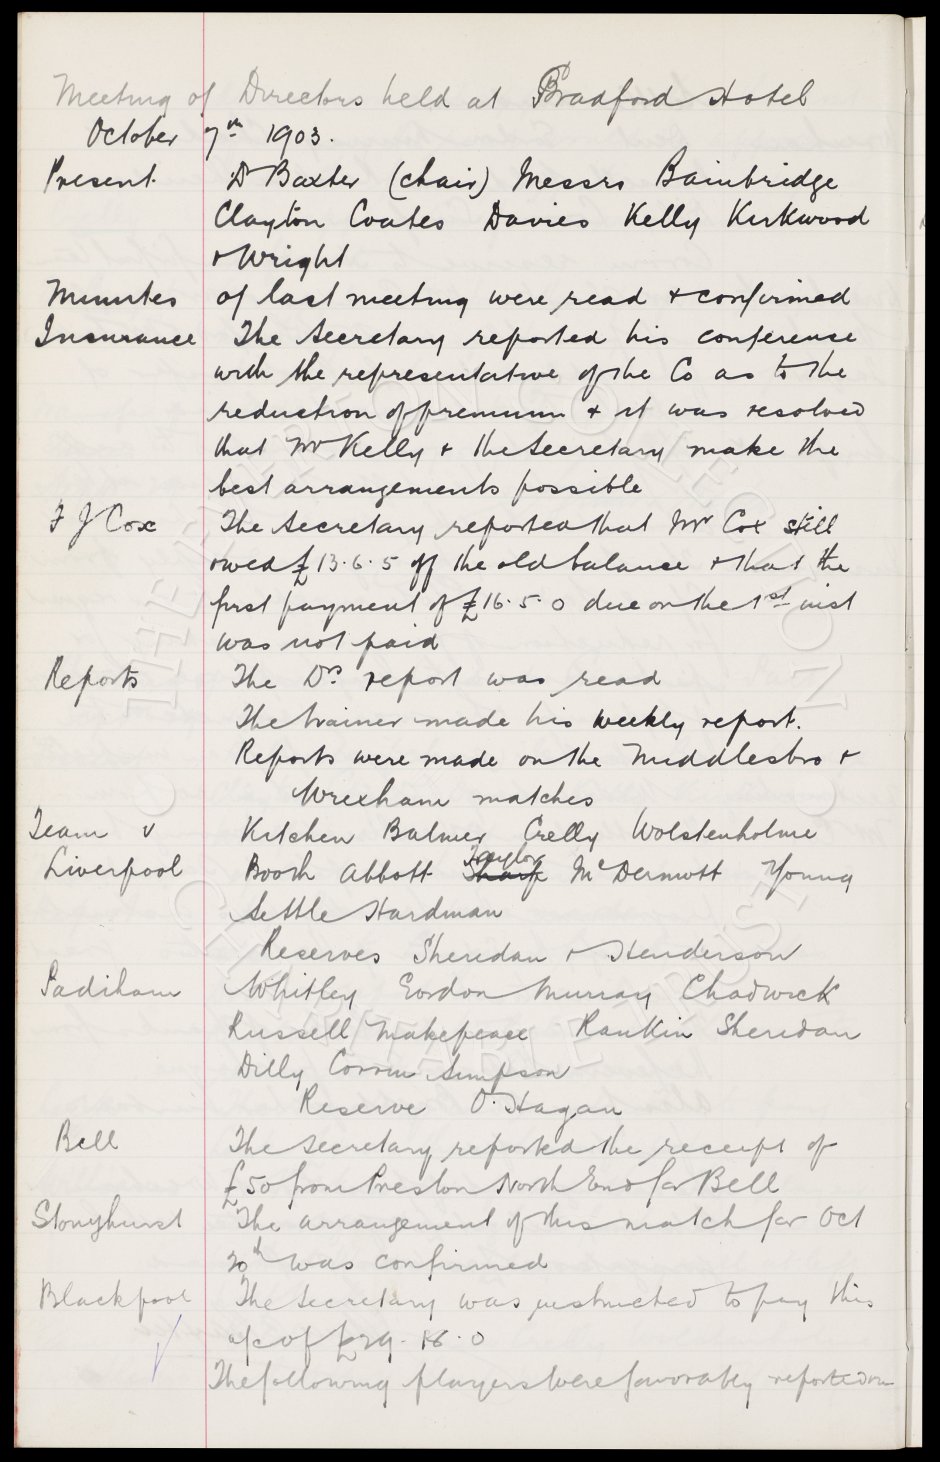 Meeting of Directors held at Bradford Hotel
October 7th 1903.
Present Dr Baxter (chair) Messrs Bainbridge
Clayton Coates Davies Kelly Kirkwood
+ Wright
Minutes of last meeting were read + confirmed
Insurance The Secretary reported his conference
with the representative of the Co as to the
reduction of premium + it was resolved
that Mr Kelly + the Secretary make the
best arrangements possible
F J Cox The Secretary reported that Mr Cox still
owed £13.6.5 off the old balance + that the
first payment of £16.5.0 due on the 1st inst
was not paid
Reports The Drs report was read
The trainer made his weekly report.
Reports were made on the Middlesbro +
Wrexham matches
Team v Kitchen Balmer Crelly Wolstenholme
Liverpool Booth Abbott Sharp Taylor McDermott Young
Settle Hardman
Reserves Sheridan + Henderson
Padiham Whitley Gordon Murray Chadwick
Russell Makepeace Rankin Sheridan
Dilly Corrin Simpson
Reserve O'Hagan
Bell The Secretary reported the receipt of
£50 from Preston North End for Bell
Stonyhurst The arrangement of this match for Oct
20th was confirmed
Blackpool The Secretary was instructed to pay this
a/c of £29. 16. 0
The following players were favorably reported on